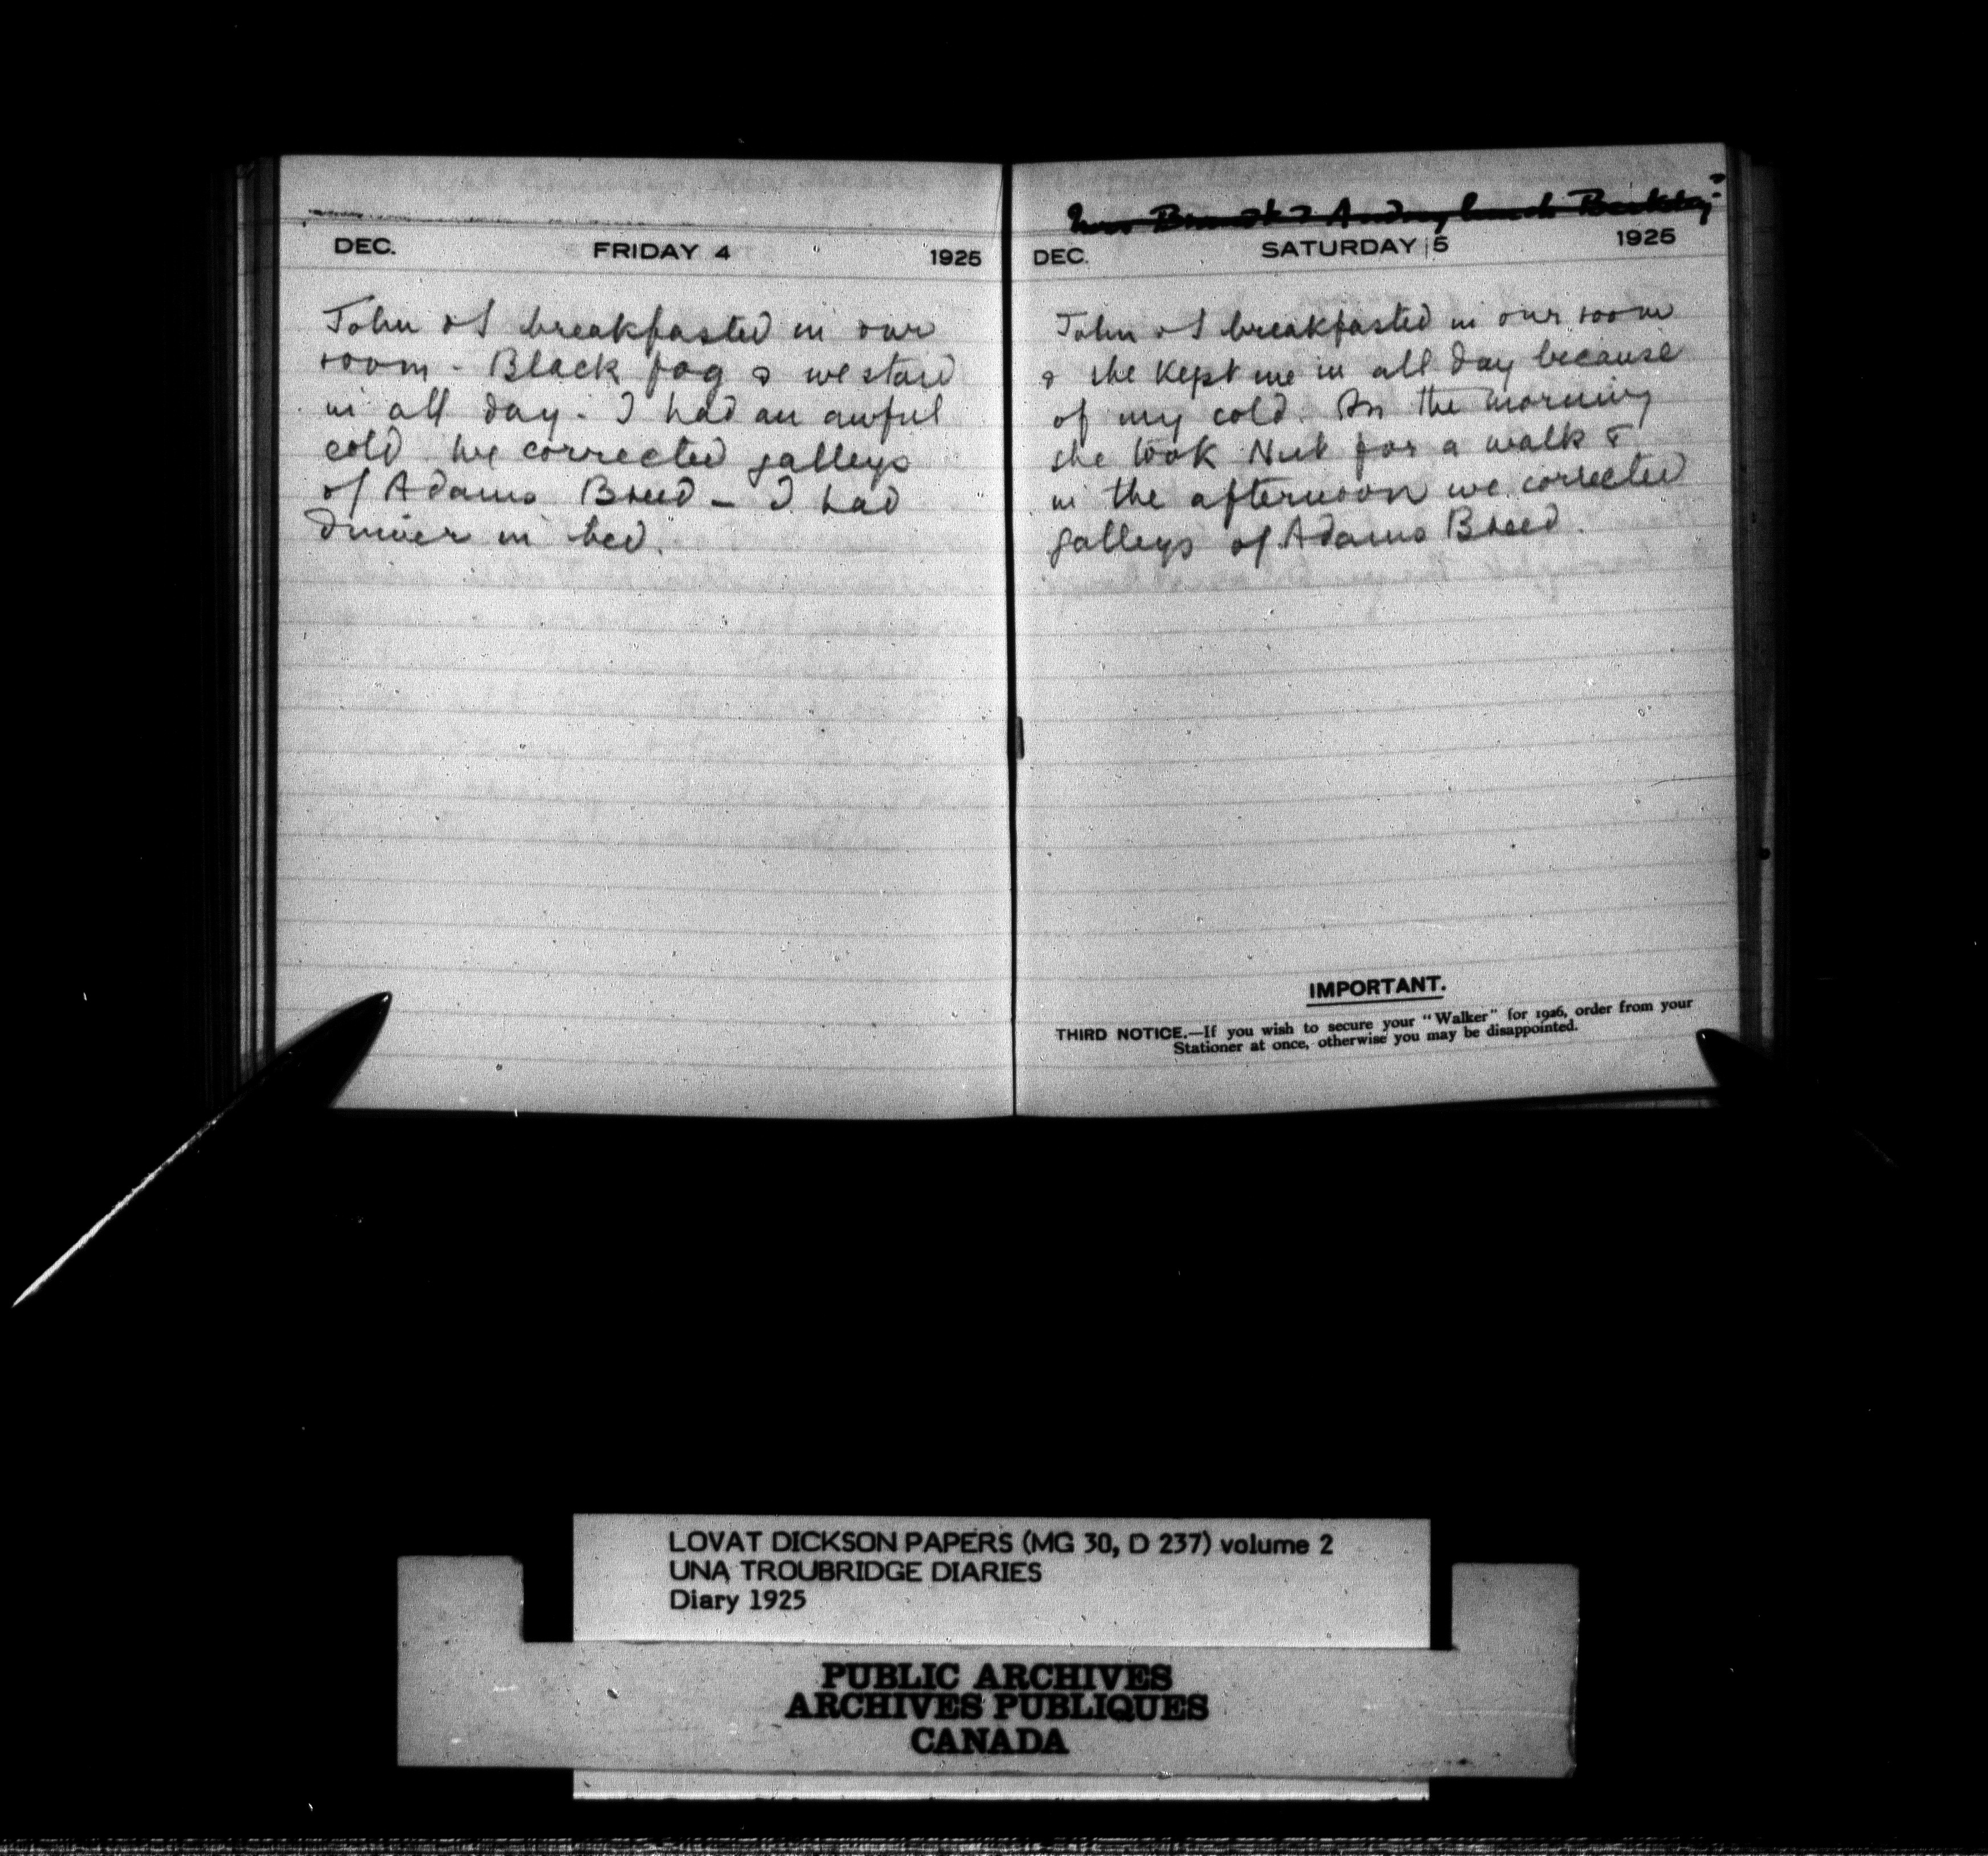 DEC. FRIDAY 4 1925
John & I breakfasted in our
room - Black fog & we staid
in all day. I had an awful
cold we corrected galleys
of Adams Breed - I had
dinner in bed.
Audrey lunch Berkley
DEC. SATURDAY 5 1925
John & I breakfasted in our room
& she kept me in all day because
of my cold. In the morning
she took Nut for a walk &
in the afternoon we corrected
galleys of Adams Breed.
IMPORTANT.
THIRD NOTICE.—If you wish to secure your "Walker" for 1926, order from your
Stationer at once, otherwise you may be disappointed.
LOVAT DICKSON PAPERS (MG 30, D 237) volume 2
UNA TROUBRIDGE DIARIES
Diary 1925
PUBLIC ARCHIVES
ARCHIVES PUBLIQUES
CANADA